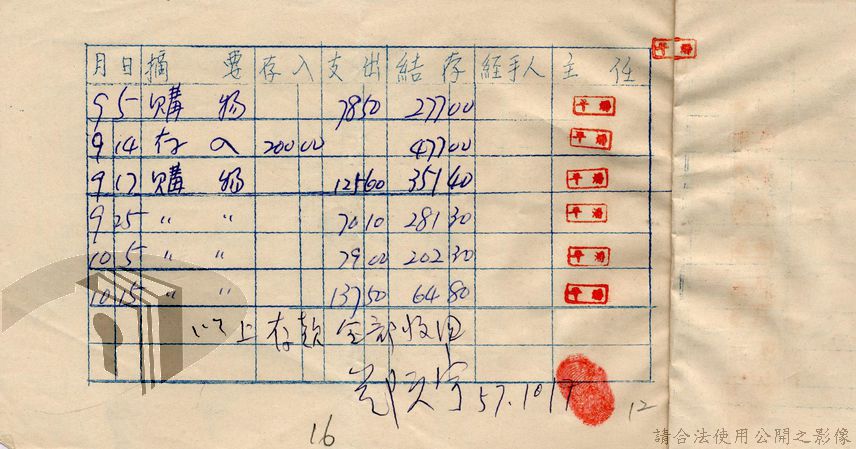 月 日 摘 要 存 入 支 出 結 存 經手人 主 任
9 5 購 物 78 50 277 00
9 14 存 入 200 00 477 00
9 17 購 物 125 60 351 40
9 25 〃 〃 70 10 281 30
10 5 〃 〃 79 00 202 30
10 15 〃 〃 137 50 64 80
以上存款全部收回
57.10.17
12
16
請合法使用公開之影像